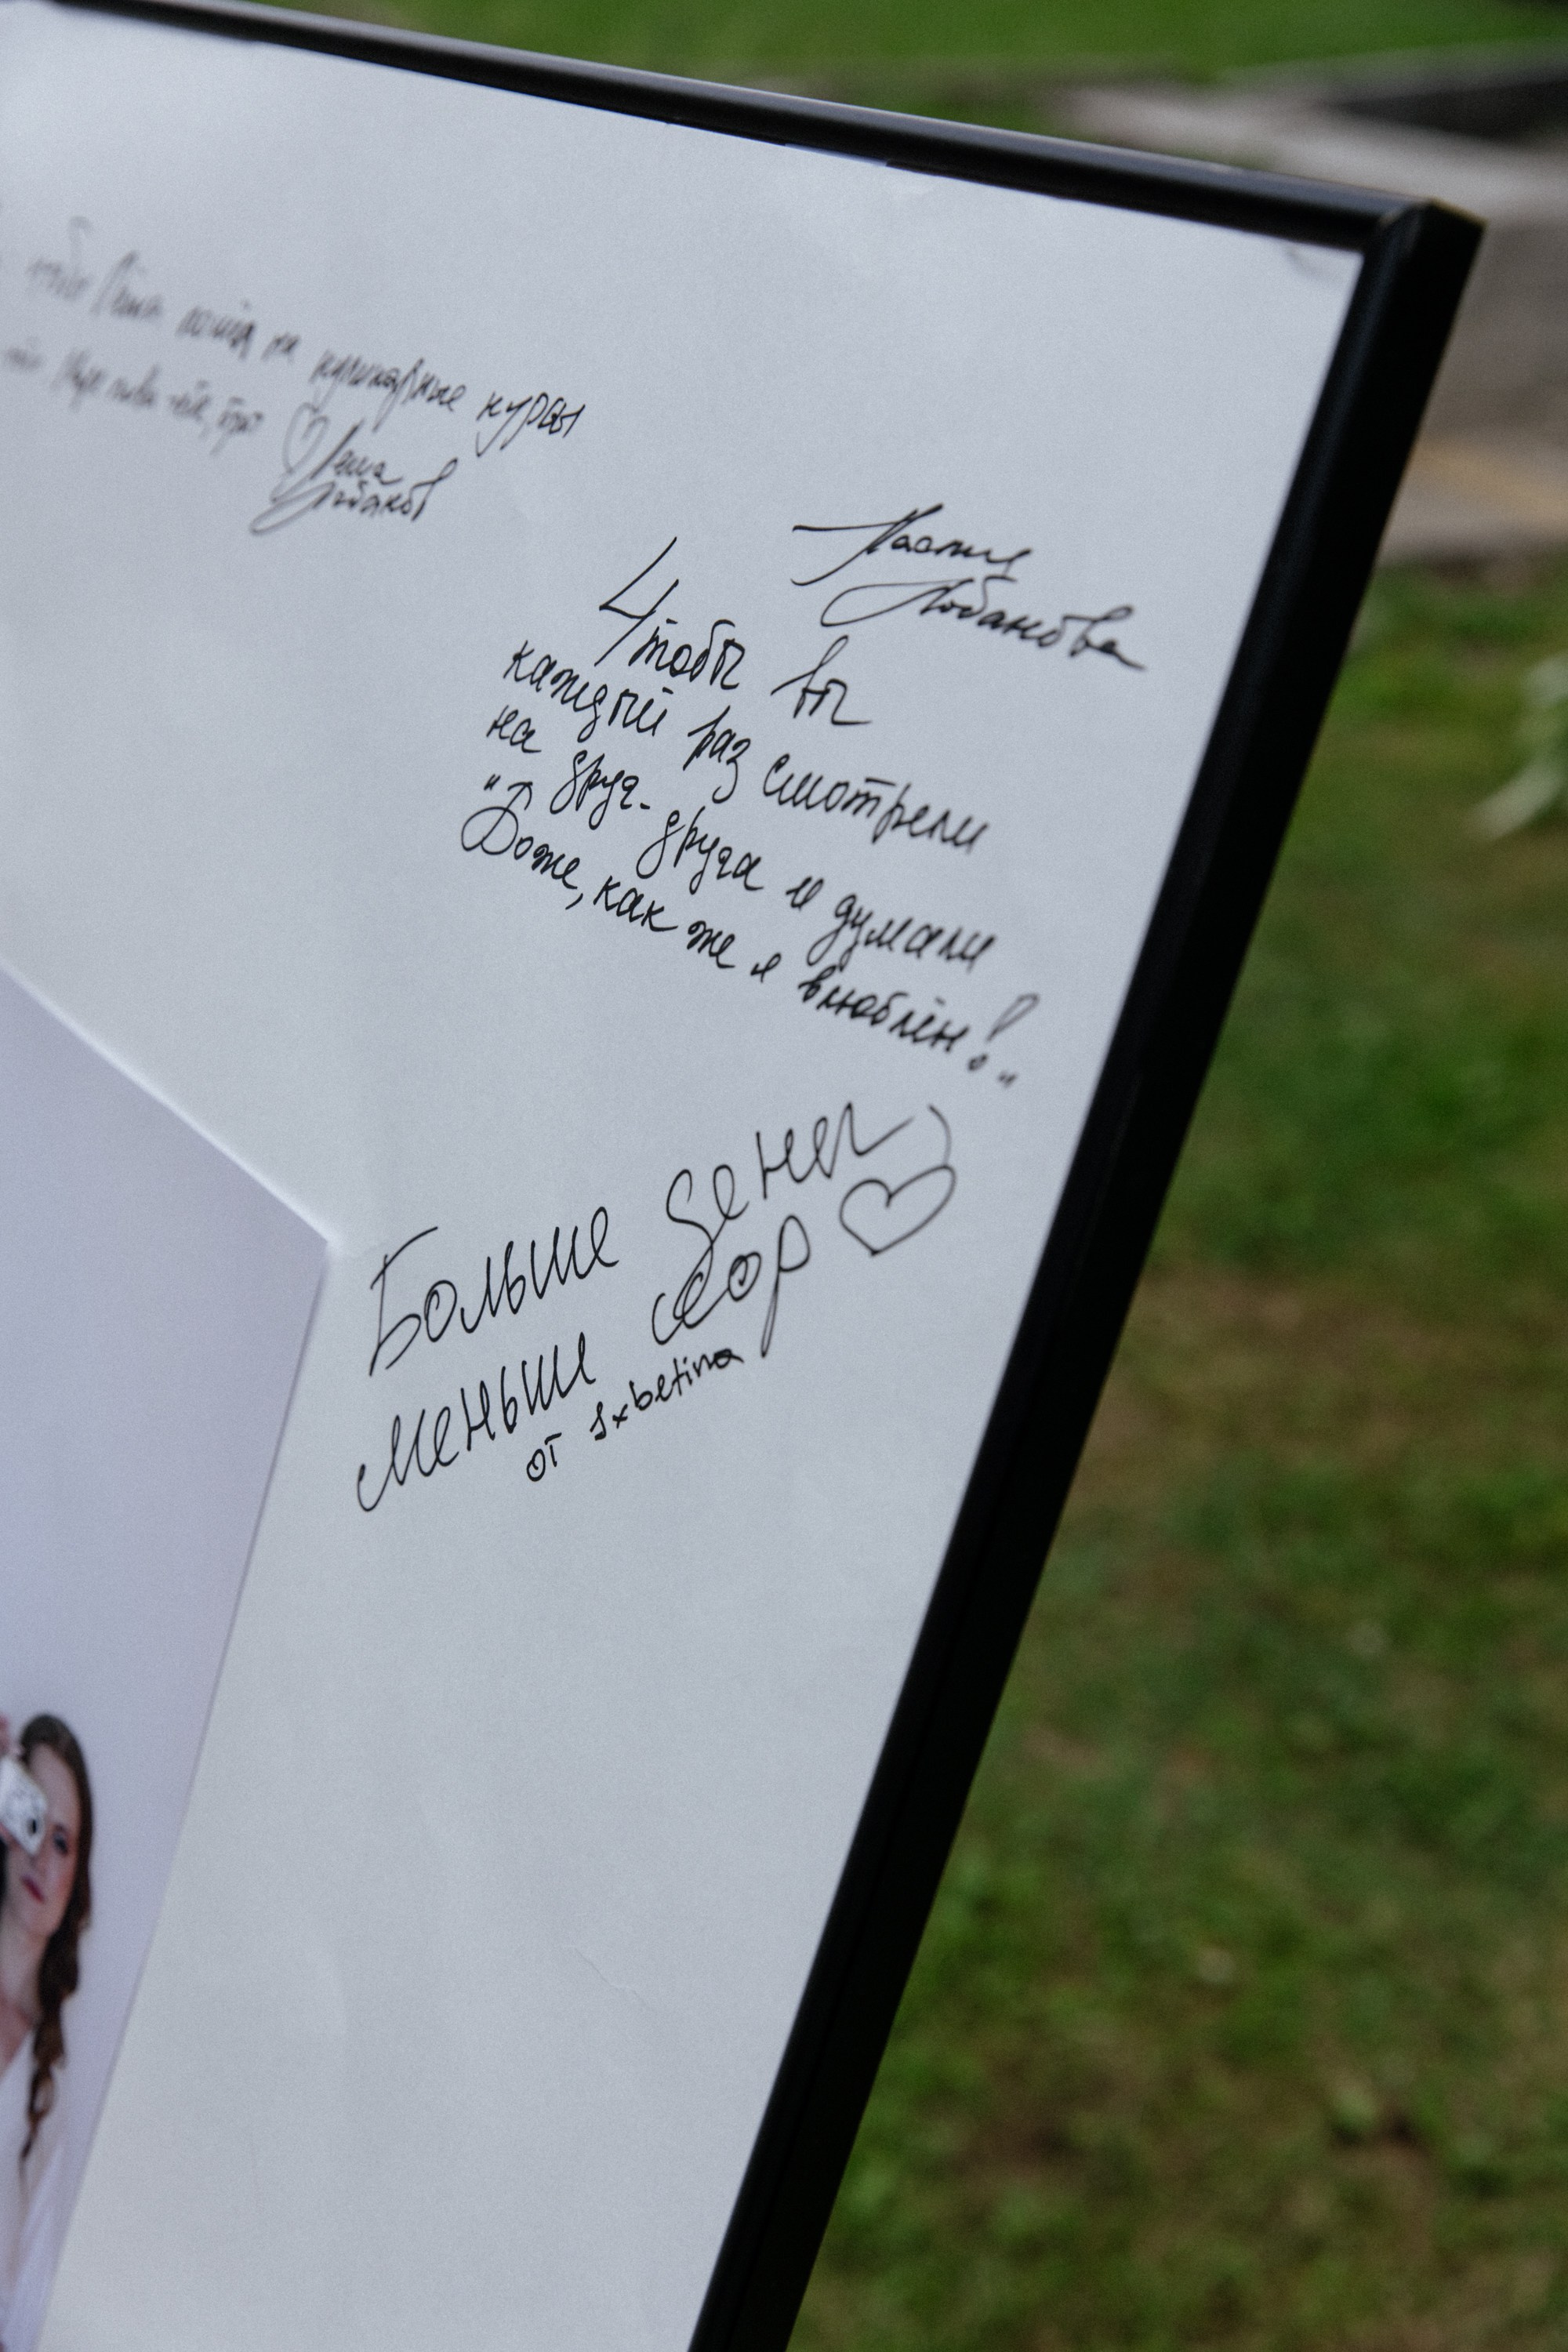 кулинарные курсы
Лёша
Лобанов
Настя
Лобанова
Чтобы вы
каждый раз смотрели
на друг-друга и думали
"Боже, как же я влюблён!"
Больше денег
меньше ссор
от 1xbetina